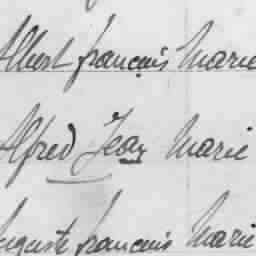 Albert françois Marie
Alfred Jean Marie
Auguste françois Marie